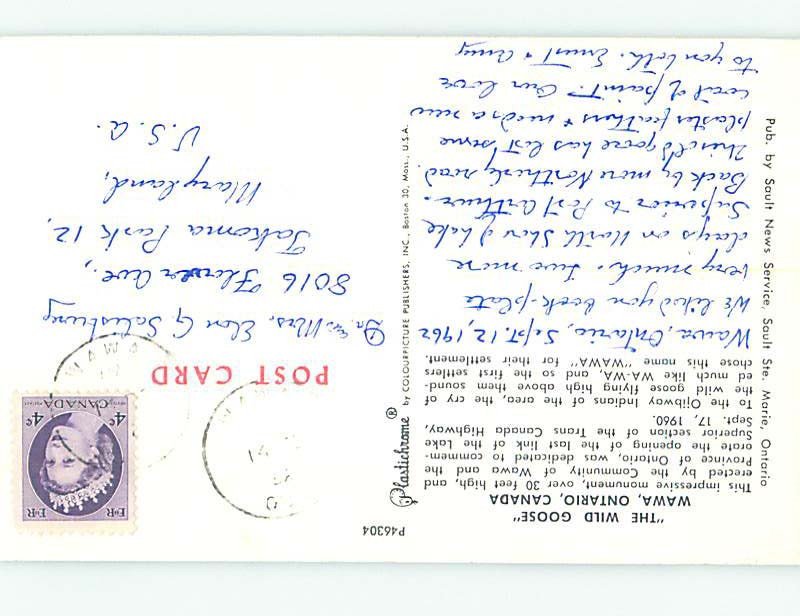 "THE WILD GOOSE"
WAWA, ONTARIO, CANADA
This impressive monument, over 30 feet high, and
erected by the Community of Wawa and the
Province of Ontario, was dedicated to commem-
orate the opening of the last link of the Lake
Superior section of the Trans Canada Highway,
Sept. 17, 1960.
To the Ojibway Indians of the area, the cry of
the wild goose flying high above them sound-
ed much like WA-WA, and so the first settlers
chose this name "WAWA" for their settlement.
Wawa, Ontario, Sept. 12, 1962
We liked your book-plate
very much. Two more
days on North Shore of Lake
Superior to Port Arthur.
Back by more Northerly road.
This old goose has lost some
plaster feathers & needs a new
coat of paint. Our love
to you both. Ernest & Amy
Pub. by Sault News Service, Sault Ste. Marie, Ontario
P46304
Plastichrome ® by COLOURPICTURE PUBLISHERS, INC., Boston 30, Mass., U.S.A.
E II R
E II R
CANADA
4¢
4¢
WAWA
14
POST CARD
Dr. & Mrs. Elon G Salisbury
8016 Flower Ave.,
Takoma Park 12,
Maryland,
U.S.A.